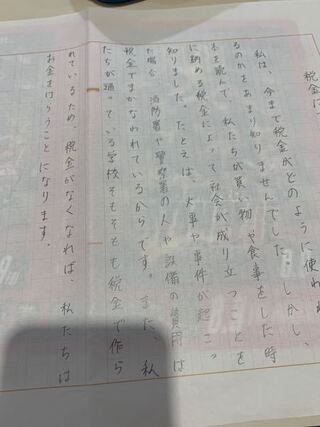 税金は
私は、今まで税金がどのように使われ
るのかをあまり知りませんでした。しかし、
を読んで、私たちが買い物や食事をした時
に納める税金によって社会が成り立つことを
知りました。たとえば、火事や事件が起こっ
た場合、消防署や警察署の人や設備の費用は
税金でまかなわれているからです。また、私
たちが通っている学校そもそも税金で作ら
れているため、税金がなくなれば、私たちは
お金をはらうことになります。